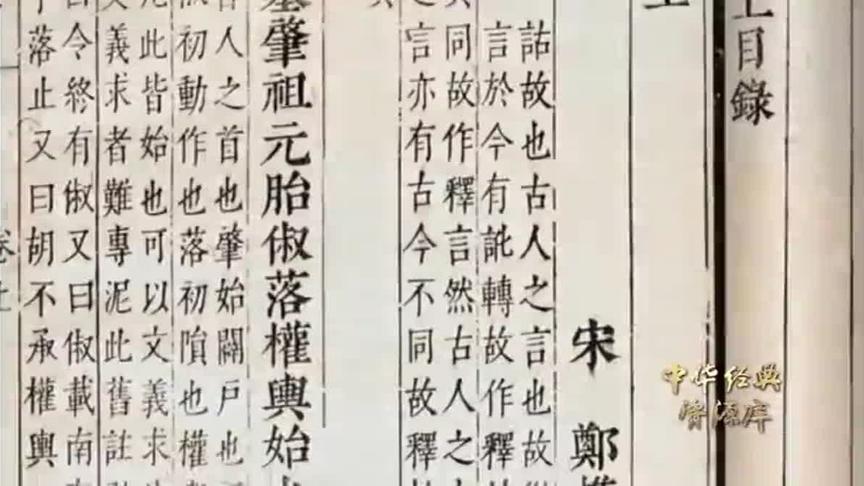 上目錄
宋 鄭樵
詁故也古人之言也故
言於今有訛轉故作釋
同故作釋言然古人之
言亦有古今不同故釋
基肇祖元胎俶落權輿始
人之首也肇始闢戶也
初動作也落初隕也權
此皆始也可以文義求
義求者難專泥此舊註
令終有俶又曰俶載南
落止又曰胡不承權輿
中华经典
资源库